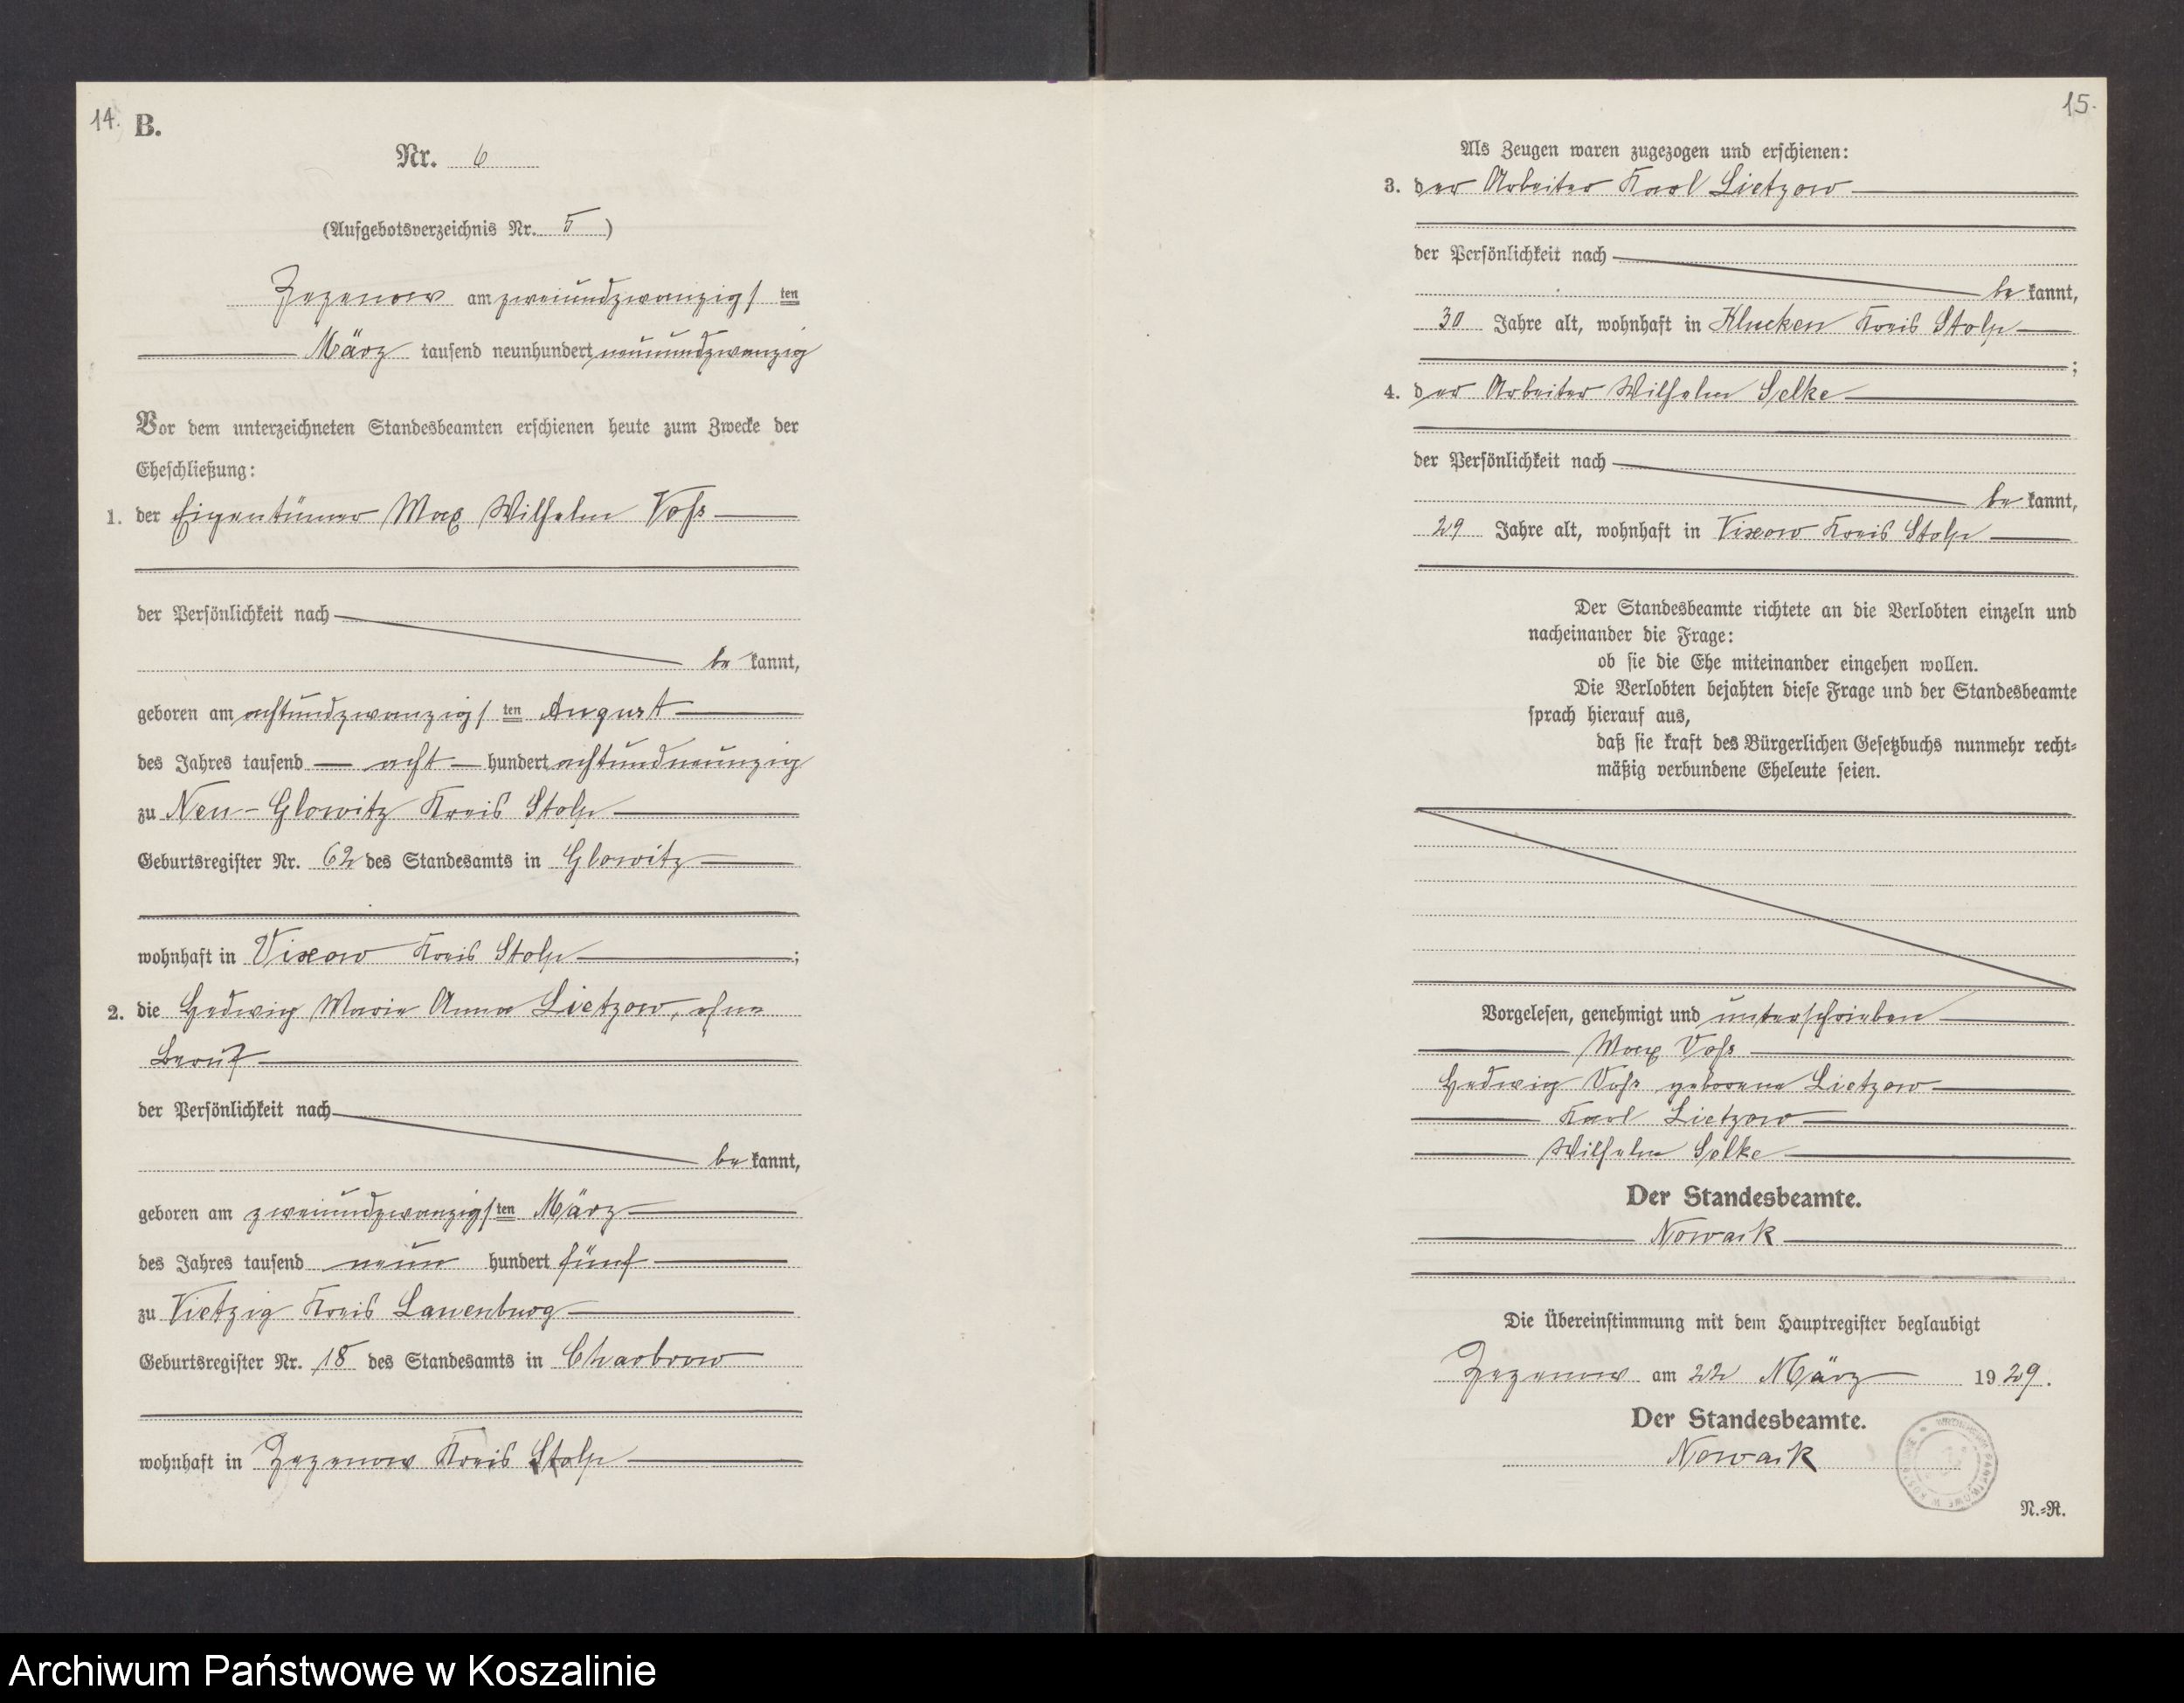 14. B.
Nr. 6
(Aufgebotsverzeichnis Nr. 5)
Zezenow am zweiundzwanzigsten
März tausend neunhundert neunundzwanzig
Vor dem unterzeichneten Standesbeamten erschienen heute zum Zwecke der
Eheschließung:
1. der Eigentümer Max Wilhelm Voß
der Persönlichkeit nach
bekannt,
geboren am achtundzwanzigsten August
des Jahres tausend acht hundert achtundneunzig
zu Neu-Glowitz Kreis Stolp
Geburtsregister Nr. 62 des Standesamts in Glowitz
wohnhaft in Vixow Kreis Stolp ;
2. die Hedwig Marie Anna Lietzow, ohne
Beruf
der Persönlichkeit nach
bekannt,
geboren am zweiundzwanzigsten März
des Jahres tausend neun hundert fünf
zu Vietzig Kreis Lauenburg
Geburtsregister Nr. 18 des Standesamts in Charbrow
wohnhaft in Zezenow Kreis Stolp
15.
Als Zeugen waren zugezogen und erschienen:
3. der Arbeiter Karl Lietzow
der Persönlichkeit nach
bekannt,
30 Jahre alt, wohnhaft in Klucken Kreis Stolp
;
4. der Arbeiter Wilhelm Selke
der Persönlichkeit nach
bekannt,
29 Jahre alt, wohnhaft in Vixow Kreis Stolp
Der Standesbeamte richtete an die Verlobten einzeln und
nacheinander die Frage:
ob sie die Ehe miteinander eingehen wollen.
Die Verlobten bejahten diese Frage und der Standesbeamte
sprach hierauf aus,
daß sie kraft des Bürgerlichen Gesetzbuchs nunmehr recht-
mäßig verbundene Eheleute seien.
Vorgelesen, genehmigt und unterschrieben
Max Voß
Hedwig Voß geborene Lietzow
Karl Lietzow
Wilhelm Selke
Der Standesbeamte.
Nowack
Die Übereinstimmung mit dem Hauptregister beglaubigt
Zezenow am 22 März 1929.
Der Standesbeamte.
Nowack
N.-R.
Archiwum Państwowe w Koszalinie